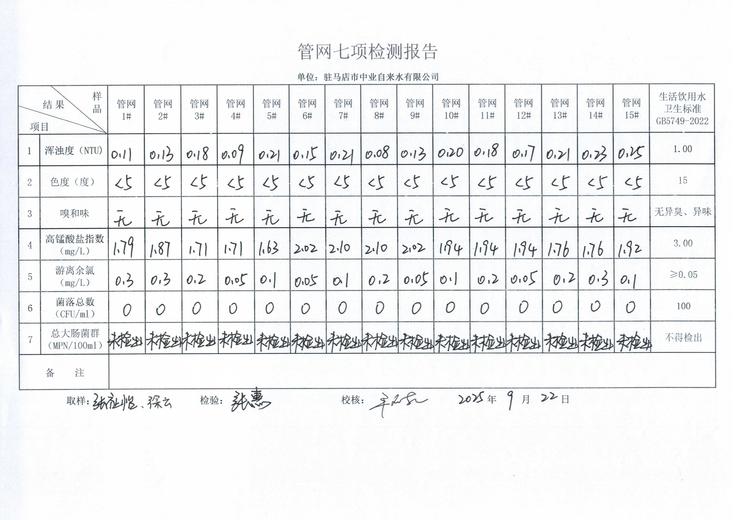 管网七项检测报告
单位：驻马店市中业自来水有限公司
结果 样品 项目 管网1# 管网2# 管网3# 管网4# 管网5# 管网6# 管网7# 管网8# 管网9# 管网10# 管网11# 管网12# 管网13# 管网14# 管网15# 生活饮用水卫生标准GB5749-2022
1 浑浊度（NTU） 0.11 0.13 0.18 0.09 0.21 0.15 0.21 0.08 0.13 0.20 0.18 0.17 0.21 0.23 0.25 1.00
2 色度（度） <5 <5 <5 <5 <5 <5 <5 <5 <5 <5 <5 <5 <5 <5 <5 15
3 嗅和味 无 无 无 无 无 无 无 无 无 无 无 无 无 无 无 无异臭、异味
4 高锰酸盐指数（mg/L） 1.79 1.87 1.71 1.71 1.63 2.02 2.10 2.10 2.02 1.94 1.94 1.94 1.76 1.76 1.92 3.00
5 游离余氯（mg/L） 0.3 0.3 0.2 0.05 0.1 0.05 0.1 0.2 0.05 0.1 0.2 0.05 0.2 0.3 0.1 ≥0.05
6 菌落总数（CFU/ml） 0 0 0 0 0 0 0 0 0 0 0 0 0 0 0 100
7 总大肠菌群（MPN/100ml） 未检出 未检出 未检出 未检出 未检出 未检出 未检出 未检出 未检出 未检出 未检出 未检出 未检出 未检出 未检出 不得检出
备注
取样： 检验：张惠 校核： 2025年9月22日